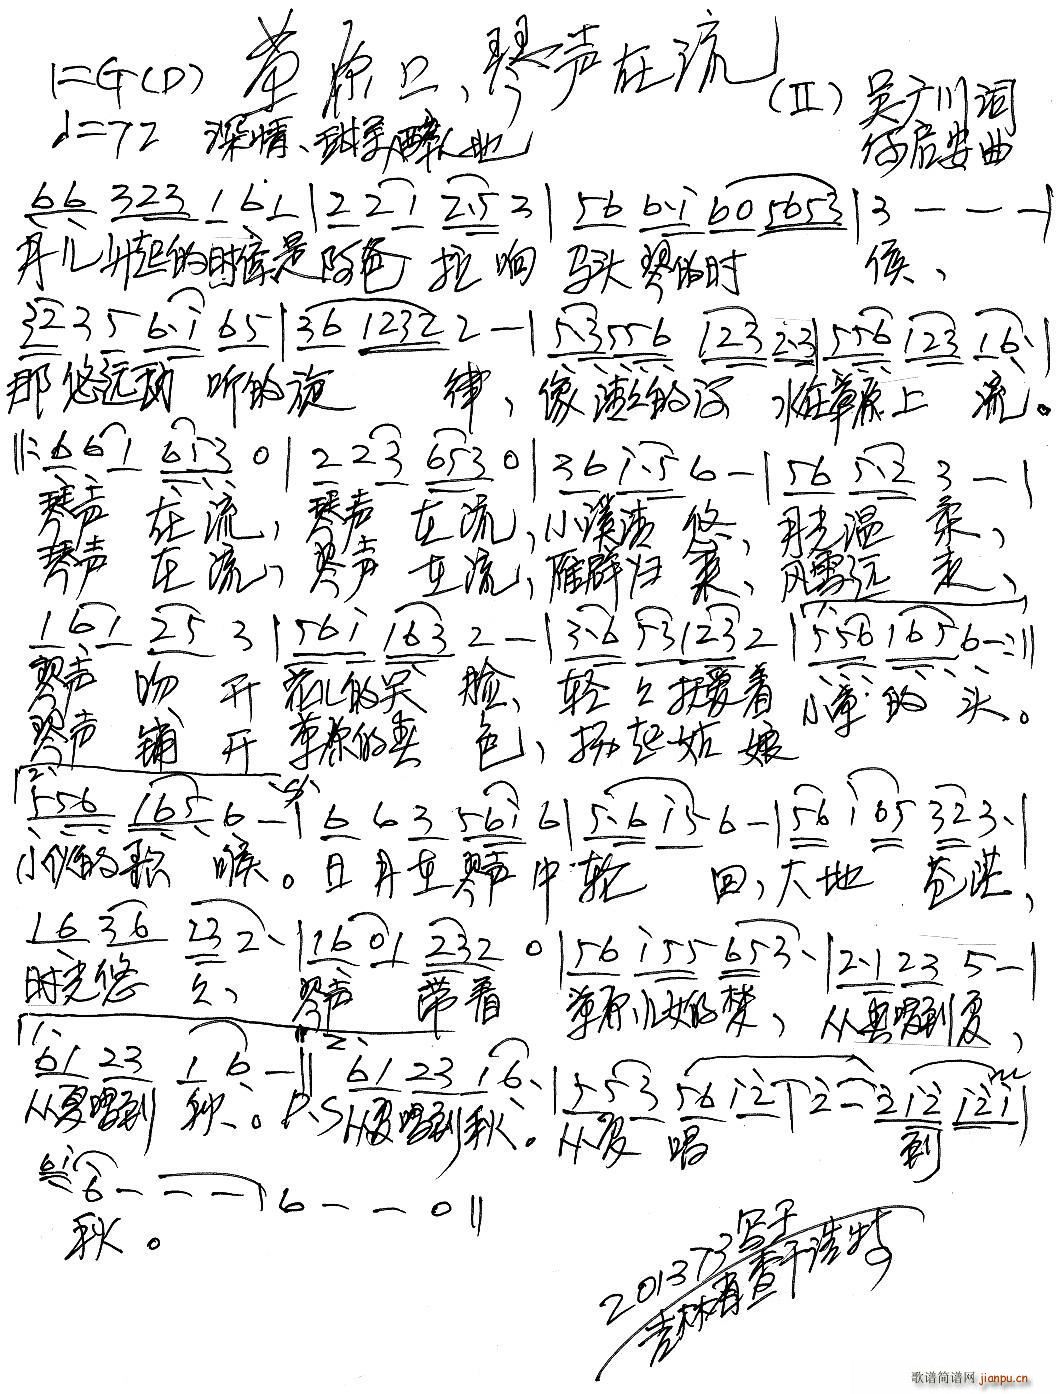 1=G(D) 草原上,琴声在流
(II) 吴广川词
♩=72 深情、甜美醉人地
佟启安曲
6 6 323 1 6 1 | 2 2 1 2·5 3 | 56 6·i 60 5653 | 3 - - - |
月儿升起的时候是阿爸 拉响 马头琴的时 候、
32 3 5 6·i 65 | 36 1232 2 - | 5·3556 123 2·3 | 556 123 16· |
那悠远动听的旋 律、像清清的河水在草原上 流。
||: 6 6 1 653 0 | 2 2 3 653 0 | 36 i·5 6 - | 56 5·2 3 - - |
琴声 在流,琴声 在流,小溪清悠,月光温柔,
琴声 在流,琴声 在流,雁群归来,风雪远走,
1 6 1 25 3 | 561 163 2 - | 3·6 531232 | 556 165 6 - :||
琴声 吻开 花儿的笑脸、轻轻抚爱着 小草的头。
琴声 铺开 草原的春色,扬起姑娘
2.
556 165 6 - | 6 6 3 561 6 | 5·6 i5 6 - | 56 i 65 323· |
小伙的歌喉。日月在琴声中轮 回,大地苍茫,
16 36 23 2· | 16 01 232 0 | 56 i55 653· | 2·123 5 - |
时光悠久、琴声 带着 草原儿女的梦,从春唱到夏,
1.
61 23 1 6· - || 2. 61 23 i 6· | 553 56 i2 | 2 - 2i2 i2i |
从夏唱到 秋、。D.S从夏唱到秋。从夏 唱 到
6i 6 - - - | 6 - - 0 ||
秋。
201373写于
吉林省查干浩特
歌谱简谱网 jianpu.cn